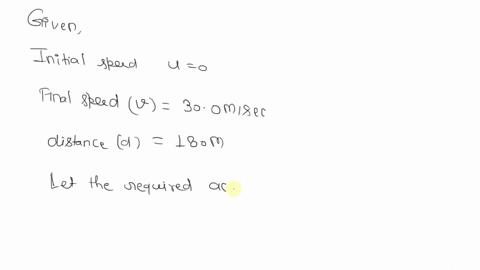 Given,
Initial speed u = 0
Final speed (v) = 30.0 m/sec
distance (d) = 180 M
Let the required ac